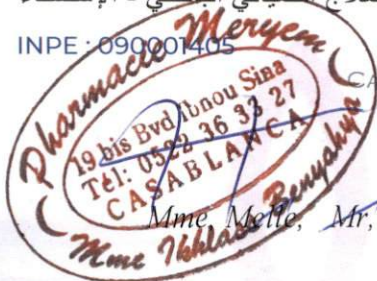 INPE : 090001405
Pharmacie Meryem
19 bis Bvd Ibnou Sina
Tél: 0522 36 33 27
CASABLANCA
Mme Ikhlas Benyahya
CA
Mme, Melle, Mr,